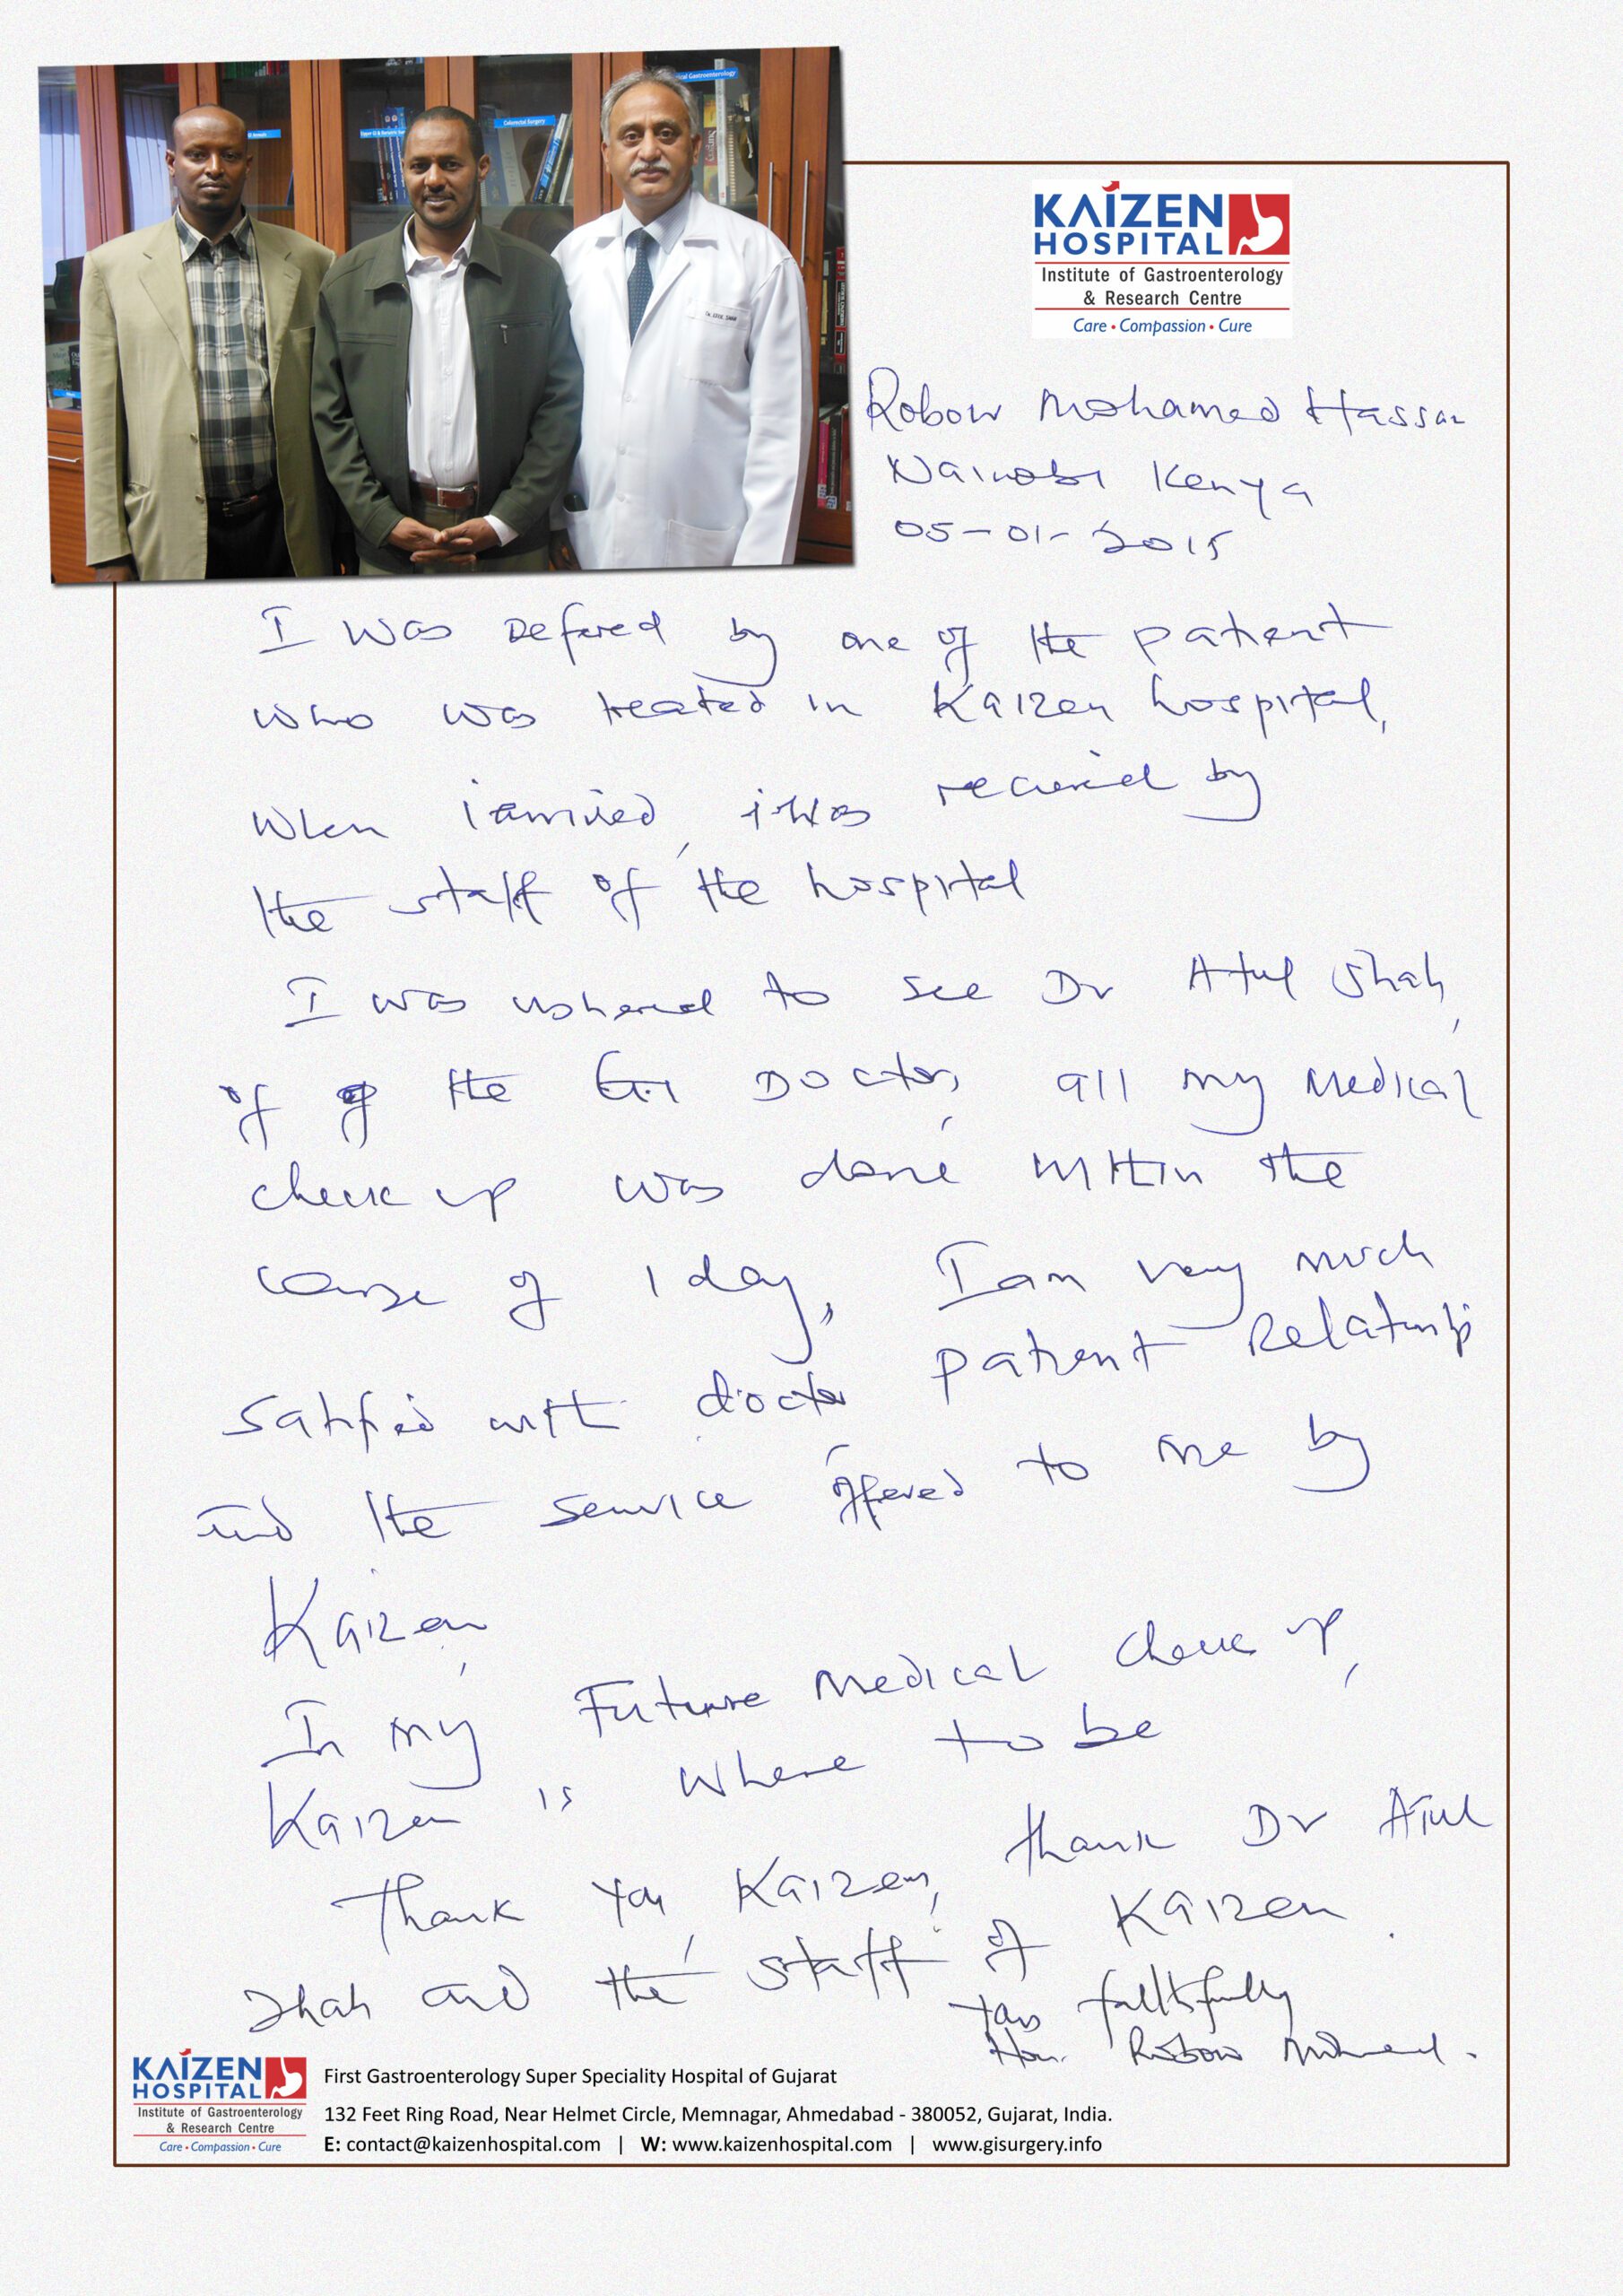 Colorectal Surgery
KAIZEN
HOSPITAL
Institute of Gastroenterology
& Research Centre
Care • Compassion • Cure
Robow Mohamed Hassan
Nairobi Kenya
05-01-2015
I was Refered by one of the patient
who was treated in Kaizen hospital,
when i arrived, i was received by
the staff of the hospital
I was ushered to see Dr Atul Shah,
of the G.I Doctor, all my medical
check up was done within the
course of 1 day, I am very much
satisfied with doctor patient Relationship
and the service offered to me by
Kaizen,
In my Future Medical check up,
Kaizen is where to be
Thank you Kaizen, thank Dr Atul
Shah and the staff of Kaizen.
faithfully
Hon. Robow Mohamed.
KAIZEN
HOSPITAL
Institute of Gastroenterology
& Research Centre
Care • Compassion • Cure
First Gastroenterology Super Speciality Hospital of Gujarat
132 Feet Ring Road, Near Helmet Circle, Memnagar, Ahmedabad - 380052, Gujarat, India.
E: contact@kaizenhospital.com | W: www.kaizenhospital.com | www.gisurgery.info